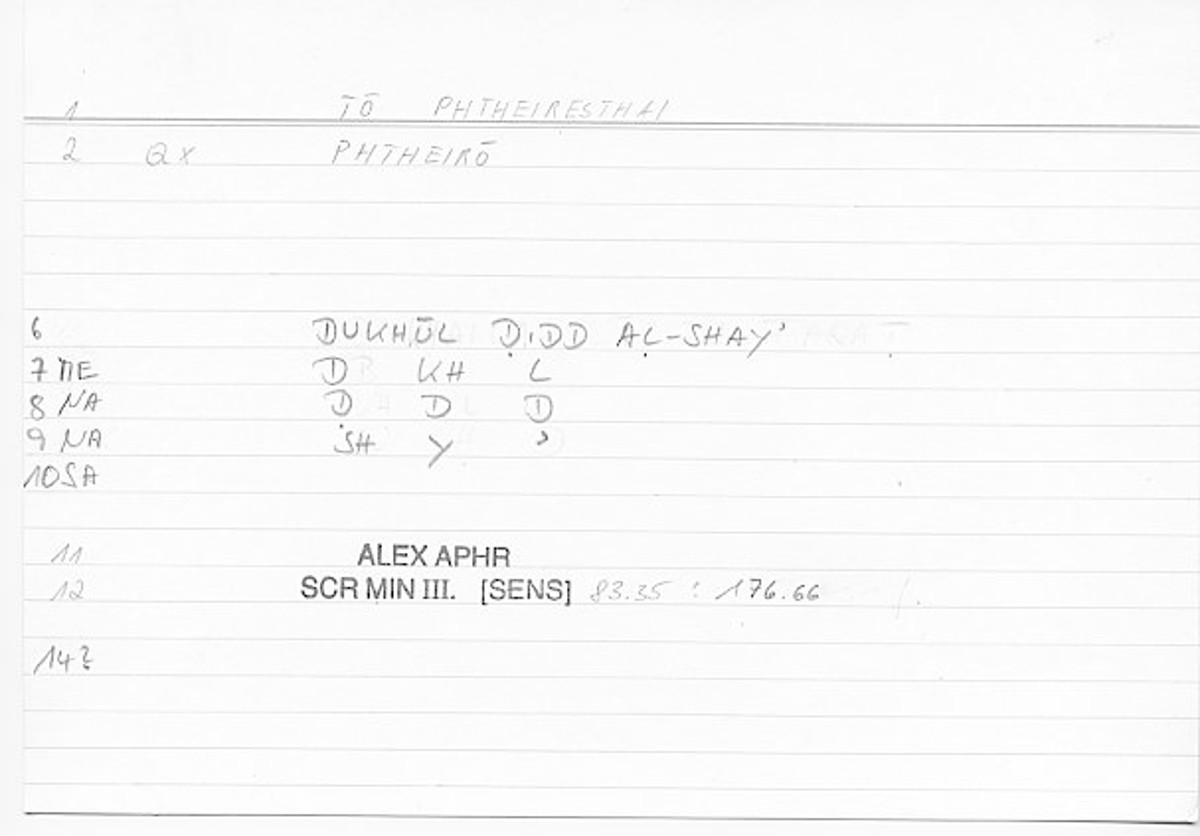 1 TŌ PHTHEIRESTHAI
2 QX PHTHEIRŌ
6 DUKHŪL ḌIDD AL-SHAY'
7 ME D KH L
8 NA Ḍ D D
9 NA SH Y '
10 SA
11 ALEX APHR
12 SCR MIN III. [SENS] 83.35 : 176.66
14 ?